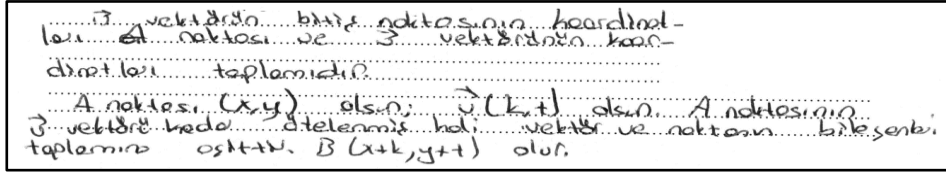 v⃗ vektörünün bitiş noktasının koordinat-
ları A noktası ve v⃗ vektörünün koor-
dinatları toplamıdır.
A noktası (x,y) olsun; v⃗(k,t) olsun. A noktasının
v⃗ vektörü kada ötelenmiş hali vektör ve noktanın bileşenle.
toplamına eşittir. B (x+k, y+t) olur.